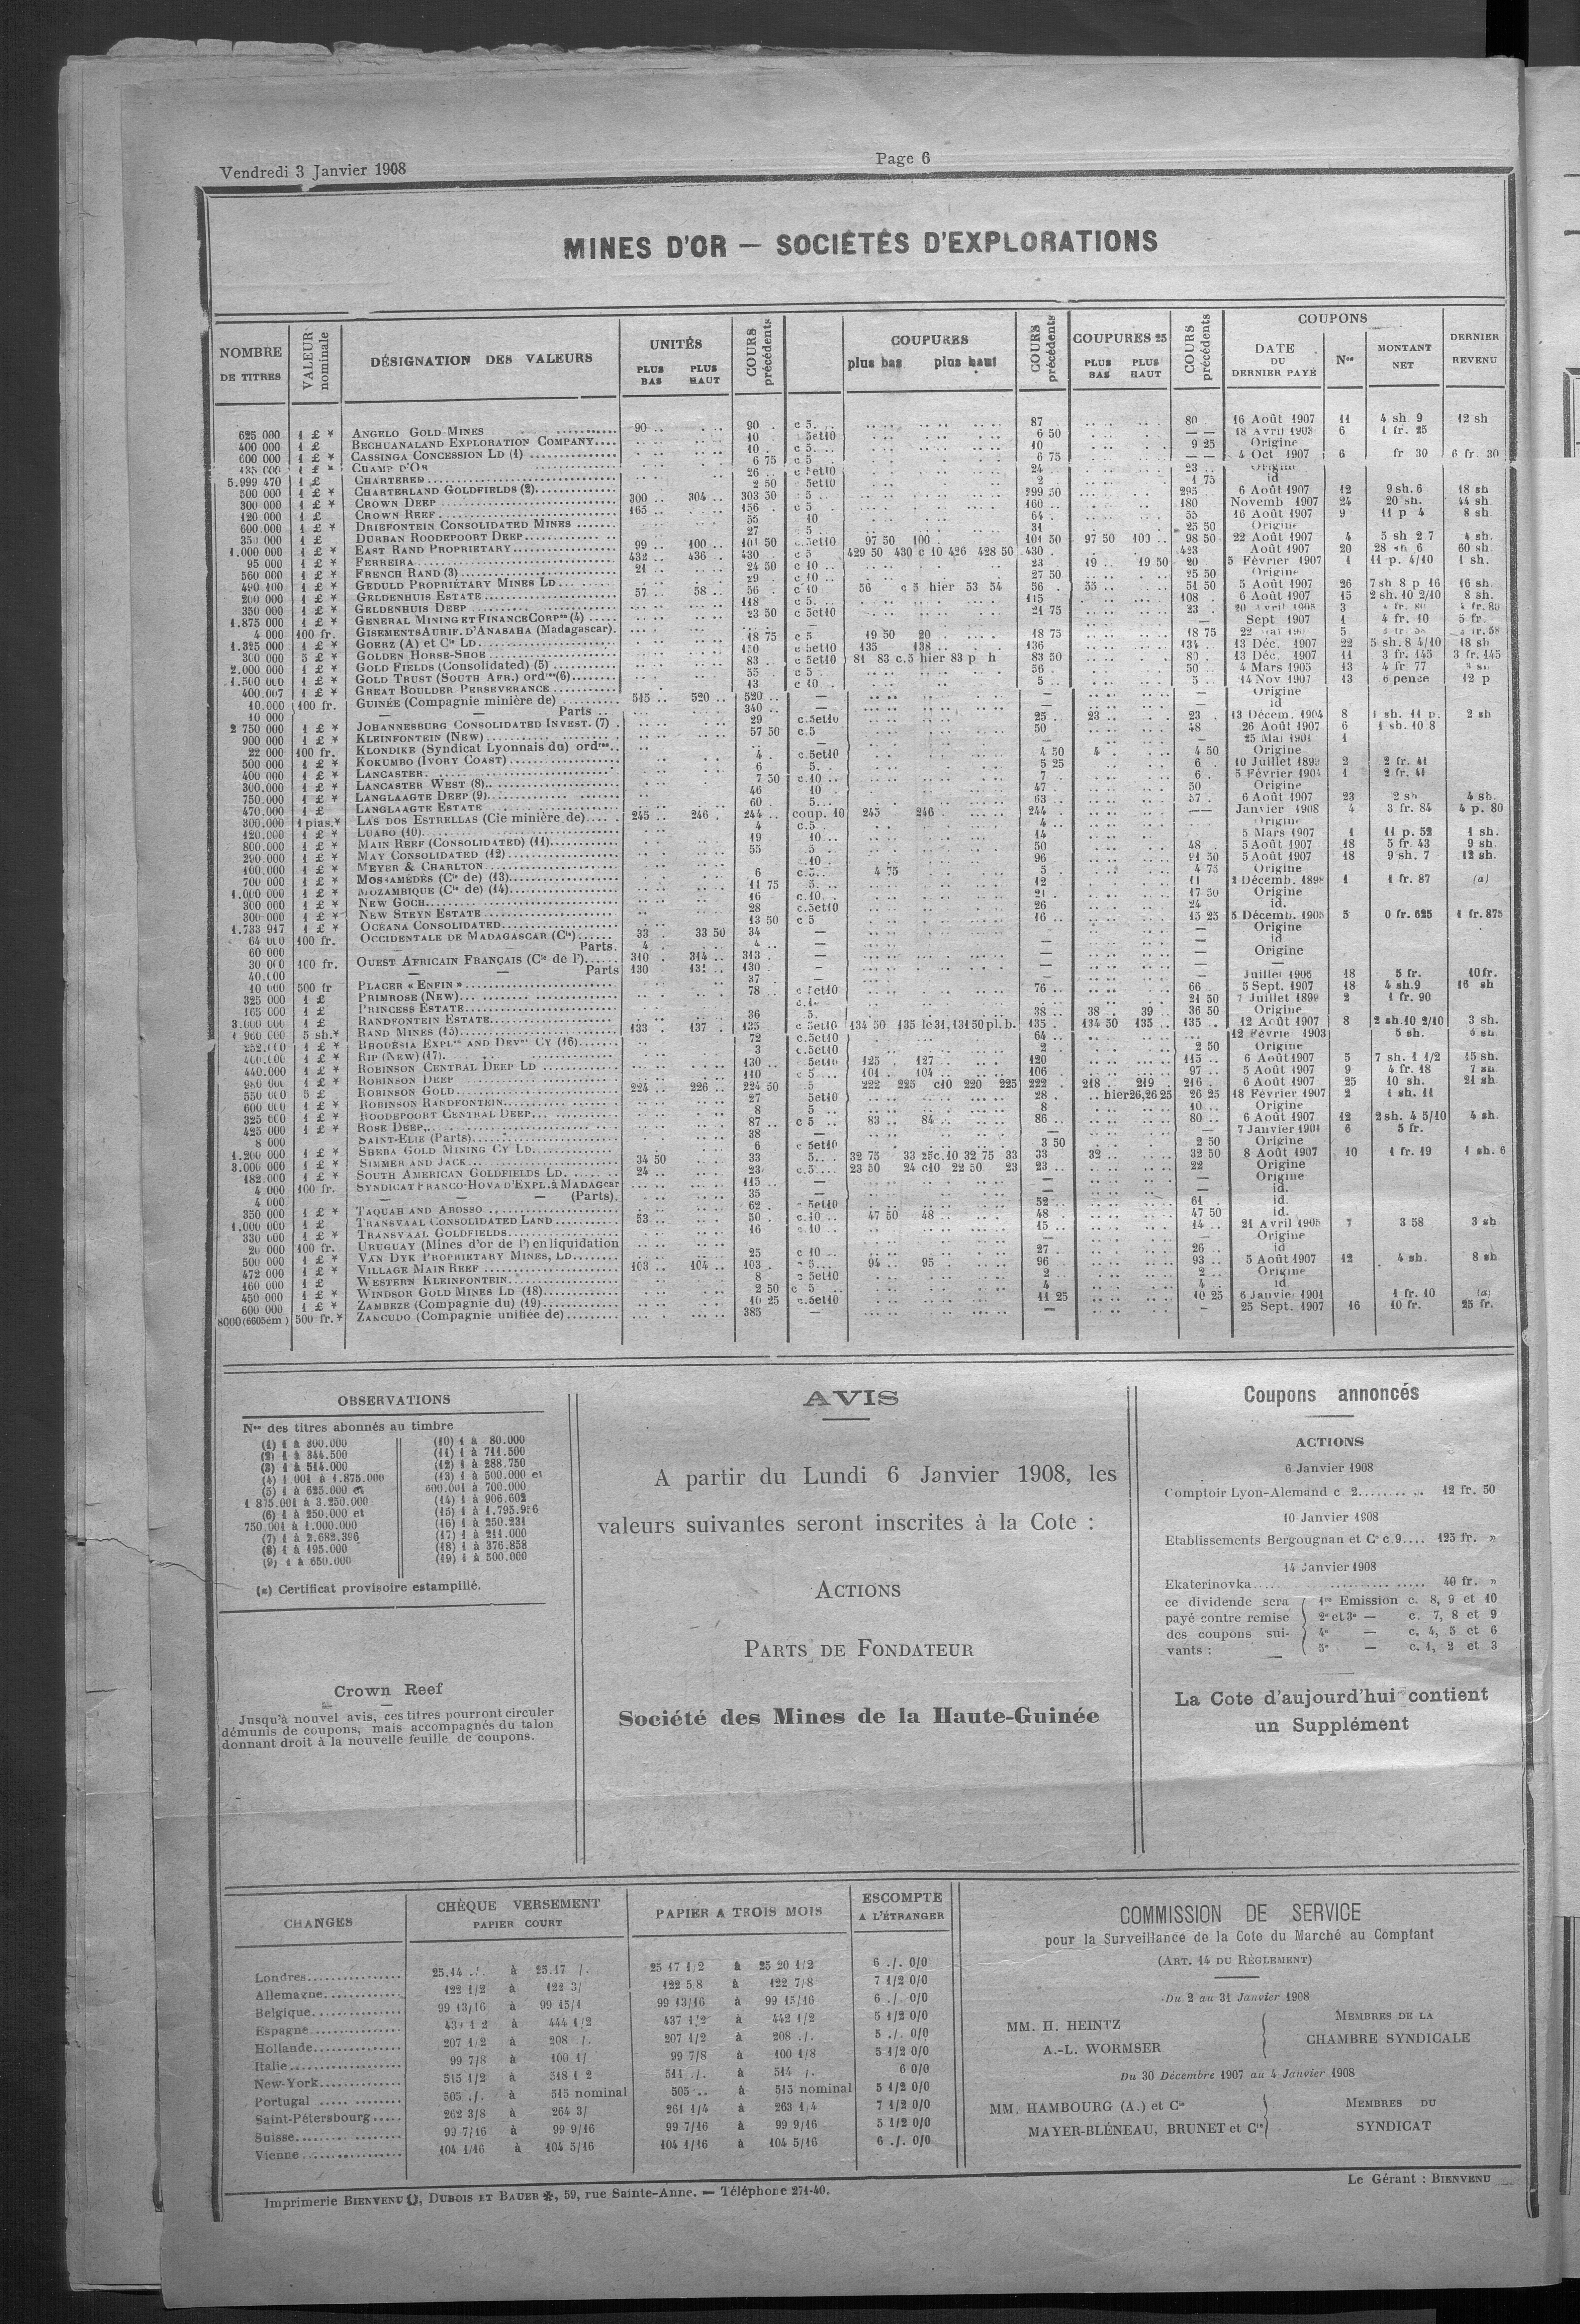 Vendredi 3 Janvier 1908
Page 6
MINES D'OR — SOCIÉTÉS D'EXPLORATIONS
NOMBRE DE TITRES
VALEUR nominale
DÉSIGNATION DES VALEURS
UNITÉS
PLUS BAS PLUS HAUT
COURS précédents
COUPURES
plus bas plus haut
COURS précédents
COUPURES 25
PLUS BAS PLUS HAUT
COURS précédents
COUPONS
DATE DU DERNIER PAYÉ
Nos
MONTANT NET
DERNIER REVENU
625 000 1 £ * ANGELO GOLD MINES 90 .. 90 . c 5. 87 80 16 Août 1907 11 4 sh 9 12 sh
400 000 1 £ BECHUANALAND EXPLORATION COMPANY 10 5et10 6 50 6 1 fr. 25
600 000 1 £ * CASSINGA CONCESSION LD (1) 10 c 5 10 9 25 Origine
CHAMP D'OR 6 75 c 5 6 75 4 Oct 1907 6 fr 30 6 fr. 30
5.999 470 1 £ CHARTERED 26 c 5et10 24 23
500 000 1 £ * CHARTERLAND GOLDFIELDS (2) 2 50 5et10 2 1 75 id
300 000 1 £ * CROWN DEEP 300 .. 304 .. 303 50 5 299 50 295 6 Août 1907 12 9 sh. 6 18 sh
120 000 1 £ CROWN REEF 165 .. 156 c 5 160 180 Novemb 1907 24 20 sh. 44 sh.
600.000 1 £ * DRIEFONTEIN CONSOLIDATED MINES 55 10 64 55 16 Août 1907 9 11 p 4 8 sh.
350 000 1 £ DURBAN ROODEPOORT DEEP 27 5 31 25 50 Origine
1.000 000 1 £ * EAST RAND PROPRIETARY 99 .. 100 .. 101 50 c.5et10 97 50 100 101 50 97 50 100 .. 98 50 22 Août 1907 4 5 sh 2 7 4 sh.
95 000 1 £ * FERREIRA 432 .. 436 .. 430 c 5 429 50 430 c 10 426 428 50 430 423 Août 1907 20 28 sh 6 60 sh.
560 000 1 £ * FRENCH RAND (3) 21 .. 24 50 c 10 23 19 .. 19 50 20 5 Février 1907 1 11 p. 4/10 1 sh.
490 100 1 £ * GEDULD PROPRIETARY MINES LD 29 c 10 27 50 25 50 Origine
200 000 1 £ * GELDENHUIS ESTATE 57 .. 58 .. 56 c 10 56 c 5 hier 53 54 56 55 .. 51 50 5 Août 1907 26 7 sh 8 p 16 16 sh.
350 000 1 £ * GELDENHUIS DEEP 118 c 5 115 108 6 Août 1907 15 2 sh. 10 2/10 8 sh.
1.875 000 1 £ * GENERAL MINING ET FINANCE CORPon (4) 23 50 c 5et10 21 75 23 3 4 fr. 80
4 000 100 fr. GISEMENTS AURIF. D'ANASAHA (Madagascar). Sept 1907 1 4 fr. 10 5 fr.
1.325 000 1 £ * GOERZ (A) et Cie LD 18 75 c 5 19 50 20 18 75 18 75 5
300 000 5 £ * GOLDEN HORSE-SHOE 130 c 5et10 135 138 136 13 Déc. 1907 22 5 sh. 8 4/10 18 sh
2.000 000 1 £ * GOLD FIELDS (Consolidated) (5) 83 c 5et10 81 83 c.5 hier 83 p h 83 50 80 13 Déc. 1907 11 3 fr. 145 3 fr. 145
1.500 000 1 £ * GOLD TRUST (SOUTH AFR.) ordres(6) 55 c 5 56 50 4 Mars 1905 13 4 fr 77
400.007 1 £ * GREAT BOULDER PERSEVERANCE 13 c 10 5 5 14 Nov 1907 13 6 pence 12 p
10.000 100 fr. GUINÉE (Compagnie minière de) 515 .. 520 .. 520 — — — Origine
10 000 — — Parts 340 — — — id
2 750 000 1 £ * JOHANNESBURG CONSOLIDATED INVEST. (7) 29 c.5et10 25 23 .. 23 13 Décem. 1904 8 1 sh. 11 p. 2 sh
900 000 1 £ * KLEINFONTEIN (NEW) 57 50 c.5 50 48 26 Août 1907 6 1 sh. 10 8
22 000 100 fr. KLONDIKE (Syndicat Lyonnais du) ordres — — 25 Mai 1901 1
500 000 1 £ * KOKUMBO (IVORY COAST) 4 c.5et10 4 50 4 4 50 Origine
400 000 1 £ * LANCASTER 6 5. 5 25 6 10 Juillet 1899 2 2 fr. 41
300.000 1 £ * LANCASTER WEST (8) 7 50 c.10 7 6 5 Février 1904 1 2 fr. 41
750.000 1 £ * LANGLAAGTE DEEP (9) 46 10 47 50 Origine
470.000 1 £ LANGLAAGTE ESTATE 60 5 63 57 6 Août 1907 23 2 sh 4 sh.
300.000 1 pias.* LAS DOS ESTRELLAS (Cie minière de) 245 .. 246 . 244 coup. 10 245 246 244 — Janvier 1908 4 3 fr. 84 4 p. 80
120.000 1 £ * LUABO (10) 4 c.5 4 Origine
800.000 1 £ * MAIN REEF (CONSOLIDATED) (11) 19 10 14 5 Mars 1907 1 11 p. 52 1 sh.
290 000 1 £ * MAY CONSOLIDATED (12) 55 5 50 48 5 Août 1907 18 5 fr. 43 9 sh.
100.000 1 £ * MEYER & CHARLTON 10 96 91 50 5 Août 1907 18 9 sh. 7 12 sh.
700 000 1 £ * MOSSAMÉDÈS (Cie de) (13) 6 c.5 4 75 5 4 75 Origine
1.000 000 1 £ * MOZAMBIQUE (Cie de) (14) 11 75 5. 12 11 2 Décemb. 1898 1 1 fr. 87 (a)
300 000 1 £ * NEW GOCH 16 c.10 21 17 50 Origine
300 000 1 £ * NEW STEYN ESTATE 28 c.5et10 26 24 id.
1.733 917 1 £ * OCEANA CONSOLIDATED 13 50 c 5 16 15 25 5 Décemb. 1905 5 0 fr. 625 1 fr. 875
64 000 100 fr. OCCIDENTALE DE MADAGASCAR (Cie) 33 .. 33 50 34 — — — Origine
60 000 — — Parts. 4 4 — — — id
30 000 100 fr. OUEST AFRICAIN FRANÇAIS (Cie de l') 310 . 314 .. 313 — — — Origine
40.000 — — Parts 130 130 — — — —
10 000 500 fr PLACER « ENFIN » 37 — — — Juillet 1906 18 5 fr. 10 fr.
325 000 1 £ PRIMROSE (NEW) 78 c 5et10 76 66 5 Sept. 1907 18 4 sh.9 16 sh
165 000 1 £ PRINCESS ESTATE 21 50 7 Juillet 1899 2 1 fr. 90
3.000 000 1 £ RANDFONTEIN ESTATE 36 5. 38 38 .. 39 . 36 50 Origine
1 960 000 5 sh.* RAND MINES (15) 133 . 137 . 135 c 5et10 134 50 135 le31,131 50 pl.b. 135 134 50 135 .. 135 12 Août 1907 8 2 sh.10 2/10 3 sh.
1 £ * RHODÉSIA EXPLon AND DEVnt CY (16) 72 c.5et10 64 — 12 Févrie 1903 5 sh.
400.000 1 £ * RIP (NEW) (17) 3 c.5et10 2 2 50 Origine
440.000 1 £ * ROBINSON CENTRAL DEEP LD 130 5et10 125 127 120 115 6 Août 1907 5 7 sh. 1 1/2 15 sh.
980 000 1 £ * ROBINSON DEEP 110 c 5 101 104 106 97 5 Août 1907 9 4 fr. 18 7 sh
550 000 5 £ ROBINSON GOLD 224 .. 226 .. 224 50 5 222 225 c10 220 225 222 218 . 219 . 216 6 Août 1907 25 10 sh. 21 sh
600 000 1 £ * ROBINSON RANDFONTEIN 27 5et10 28 hier26,26 25 26 25 18 Février 1907 2 1 sh. 11
325 000 1 £ * ROODEPOORT CENTRAL DEEP 8 5 8 10 Origine
425 000 1 £ * ROSE DEEP 87 c 5 83 84 86 80 6 Août 1907 12 2 sh. 4 5/10 4 sh.
8 000 SAINT-ELIE (Parts) 38 — — — 7 Janvier 1901 6 5 fr.
1.200 000 1 £ * SHEBA GOLD MINING CY LD 6 c 5et10 3 50 2 50 Origine
3.000 000 1 £ * SIMMER AND JACK 34 50 33 5. 32 75 33 25c.10 32 75 33 33 32 .. 32 50 8 Août 1907 10 1 fr. 19 1 sh. 6
182.000 1 £ * SOUTH AMERICAN GOLDFIELDS LD 24 .. 23 c.5 23 50 24 c10 22 50 23 23 22 Origine
4 000 100 fr. SYNDICAT FRANCO-HOVA D'EXPL. à MADAGcar 115 — — — Origine
4 000 — — — (Parts). 35 — — — id.
350 000 1 £ * TAQUAH AND ABOSSO 62 5et10 52 61 id.
1.000 000 1 £ TRANSVAAL CONSOLIDATED LAND 53 .. 50 c.10 47 50 48 48 47 50 id.
330 000 1 £ * TRANSVAAL GOLDFIELDS 16 c.10 15 14 21 Avril 1905 7 3 58 3 sh
20 000 100 fr. URUGUAY (Mines d'or de l') en liquidation — Origine
500 000 1 £ * VAN DYK PROPRIETARY MINES, LD 25 c 10 27 26 id
472 000 1 £ * VILLAGE MAIN REEF 103 .. 104 .. 103 5 94 95 96 93 5 Août 1907 12 4 sh. 8 sh
160 000 1 £ WESTERN KLEINFONTEIN 8 5et10 2 2 Origine
450 000 1 £ * WINDSOR GOLD MINES LD (18) 2 50 c 5 4 4 id.
600 000 1 £ * ZAMBEZE (Compagnie du) (19) 10 25 c.5et10 11 25 10 25 6 Janvier 1901 1 fr. 10 (a)
8000(6605ém) 500 fr.* ZANCUDO (Compagnie unifiée de) 385 — — — 25 Sept. 1907 16 10 fr. 25 fr.
OBSERVATIONS
Nos des titres abonnés au timbre
(1) 1 à 300.000
(2) 1 à 344.500
(3) 1 à 514.000
(4) 1 001 à 1.875.000
(5) 1 à 625.000 et
1 875.001 à 3.250.000
(6) 1 à 250.000 et
750.001 à 1.000.000
(7) 1 à 2.682.396
(8) 1 à 195.000
(9) 1 à 650.000
(10) 1 à 80.000
(11) 1 à 711.500
(12) 1 à 288.750
(13) 1 à 500.000 et
600.001 à 700.000
(14) 1 à 906.602
(15) 1 à 1.795.956
(16) 1 à 250.231
(17) 1 à 211.000
(18) 1 à 376.858
(19) 1 à 500.000
(a) Certificat provisoire estampillé.
Crown Reef
Jusqu'à nouvel avis, ces titres pourront circuler
démunis de coupons, mais accompagnés du talon
donnant droit à la nouvelle feuille de coupons.
AVIS
A partir du Lundi 6 Janvier 1908, les
valeurs suivantes seront inscrites à la Cote :
ACTIONS
PARTS DE FONDATEUR
Société des Mines de la Haute-Guinée
Coupons annoncés
ACTIONS
6 Janvier 1908
Comptoir Lyon-Alemand c 2........ .. 12 fr. 50
10 Janvier 1908
Etablissements Bergougnan et Ce c.9.... 125 fr. »
14 Janvier 1908
Ekaterinovka.... 40 fr. »
ce dividende sera 1re Emission c. 8, 9 et 10
payé contre remise 2e et 3e — c. 7, 8 et 9
des coupons sui- 4e — c. 4, 5 et 6
vants : 5e — c. 1, 2 et 3
La Cote d'aujourd'hui contient
un Supplément
CHANGES
CHÈQUE VERSEMENT
PAPIER COURT
PAPIER A TROIS MOIS
ESCOMPTE
A L'ÉTRANGER
Londres 25.14 ./. à 25.17 /. 25 17 1/2 à 25 20 1/2 6 ./. 0/0
Allemagne 122 1/2 à 122 3/ 122 5 8 à 122 7/8 7 1/2 0/0
Belgique 99 13/16 à 99 15/1 99 13/16 à 99 15/16 6 ./. 0/0
Espagne à 444 1/2 437 1/2 à 442 1/2 5 1/2 0/0
Hollande 207 1/2 à 208 /. 207 1/2 à 208 ./. 5 ./. 0/0
Italie 99 7/8 à 100 1/ 99 7/8 à 100 1/8 5 1/2 0/0
New-York 515 1/2 à 518 1 2 511 ./. à 514 /. 6 0/0
Portugal 505 ./. à 515 nominal 505 .. à 515 nominal 5 1/2 0/0
Saint-Pétersbourg 262 3/8 à 264 3/ 261 1/4 à 263 1/4 7 1/2 0/0
Suisse 99 7/16 à 99 9/16 99 7/16 à 99 9/16 5 1/2 0/0
Vienne 104 1/16 à 104 5/16 104 1/16 à 104 5/16 6 ./. 0/0
COMMISSION DE SERVICE
pour la Surveillance de la Cote du Marché au Comptant
(ART. 14 DU RÈGLEMENT)
Du 2 au 31 Janvier 1908
MM. H. HEINTZ
A.-L. WORMSER
MEMBRES DE LA
CHAMBRE SYNDICALE
Du 30 Décembre 1907 au 4 Janvier 1908
MM. HAMBOURG (A.) et Cie
MAYER-BLÉNEAU, BRUNET et Cie
MEMBRES DU
SYNDICAT
Le Gérant : BIENVENU
Imprimerie BIENVENU, DUBOIS ET BAUER, 59, rue Sainte-Anne. — Téléphone 271-40.